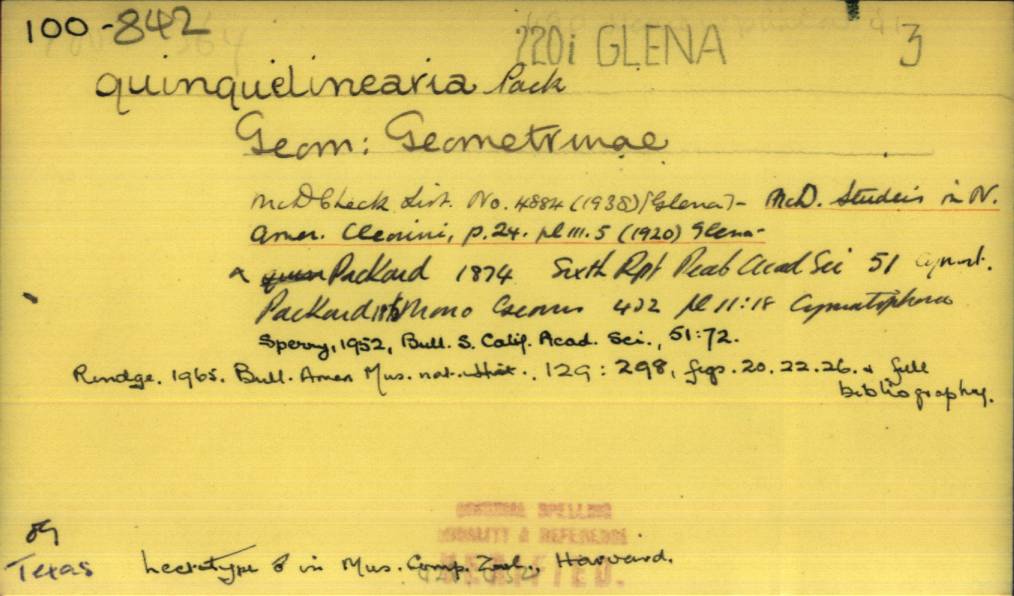 100-842
220i GLENA 3
quinquelinearia Pack
Geom: Geometrinae
McD Check List. No. 4884 (1938) [Glena] - McD. Studies in N.
Amer. Cleorini, p.24. pl III. 5 (1920) Glena-
Packard 1874 Sixth Rpt Peab Acad Sci 51 Cymat.
Packard 1876 Mono Geoms 432 pl 11:18 Cymatophora
Sperry, 1952, Bull. S. Calif. Acad. Sci., 51:72.
Rindge. 1965. Bull. Amer Mus. nat. Hist. 129: 298, figs. 20. 22. 26. & full
bibliography.
ORIGINAL SPELLING
LOCALITY & REFERENCE
VERIFIED.
Texas Lectotype ♂ in Mus. Comp. Zool., Harvard.